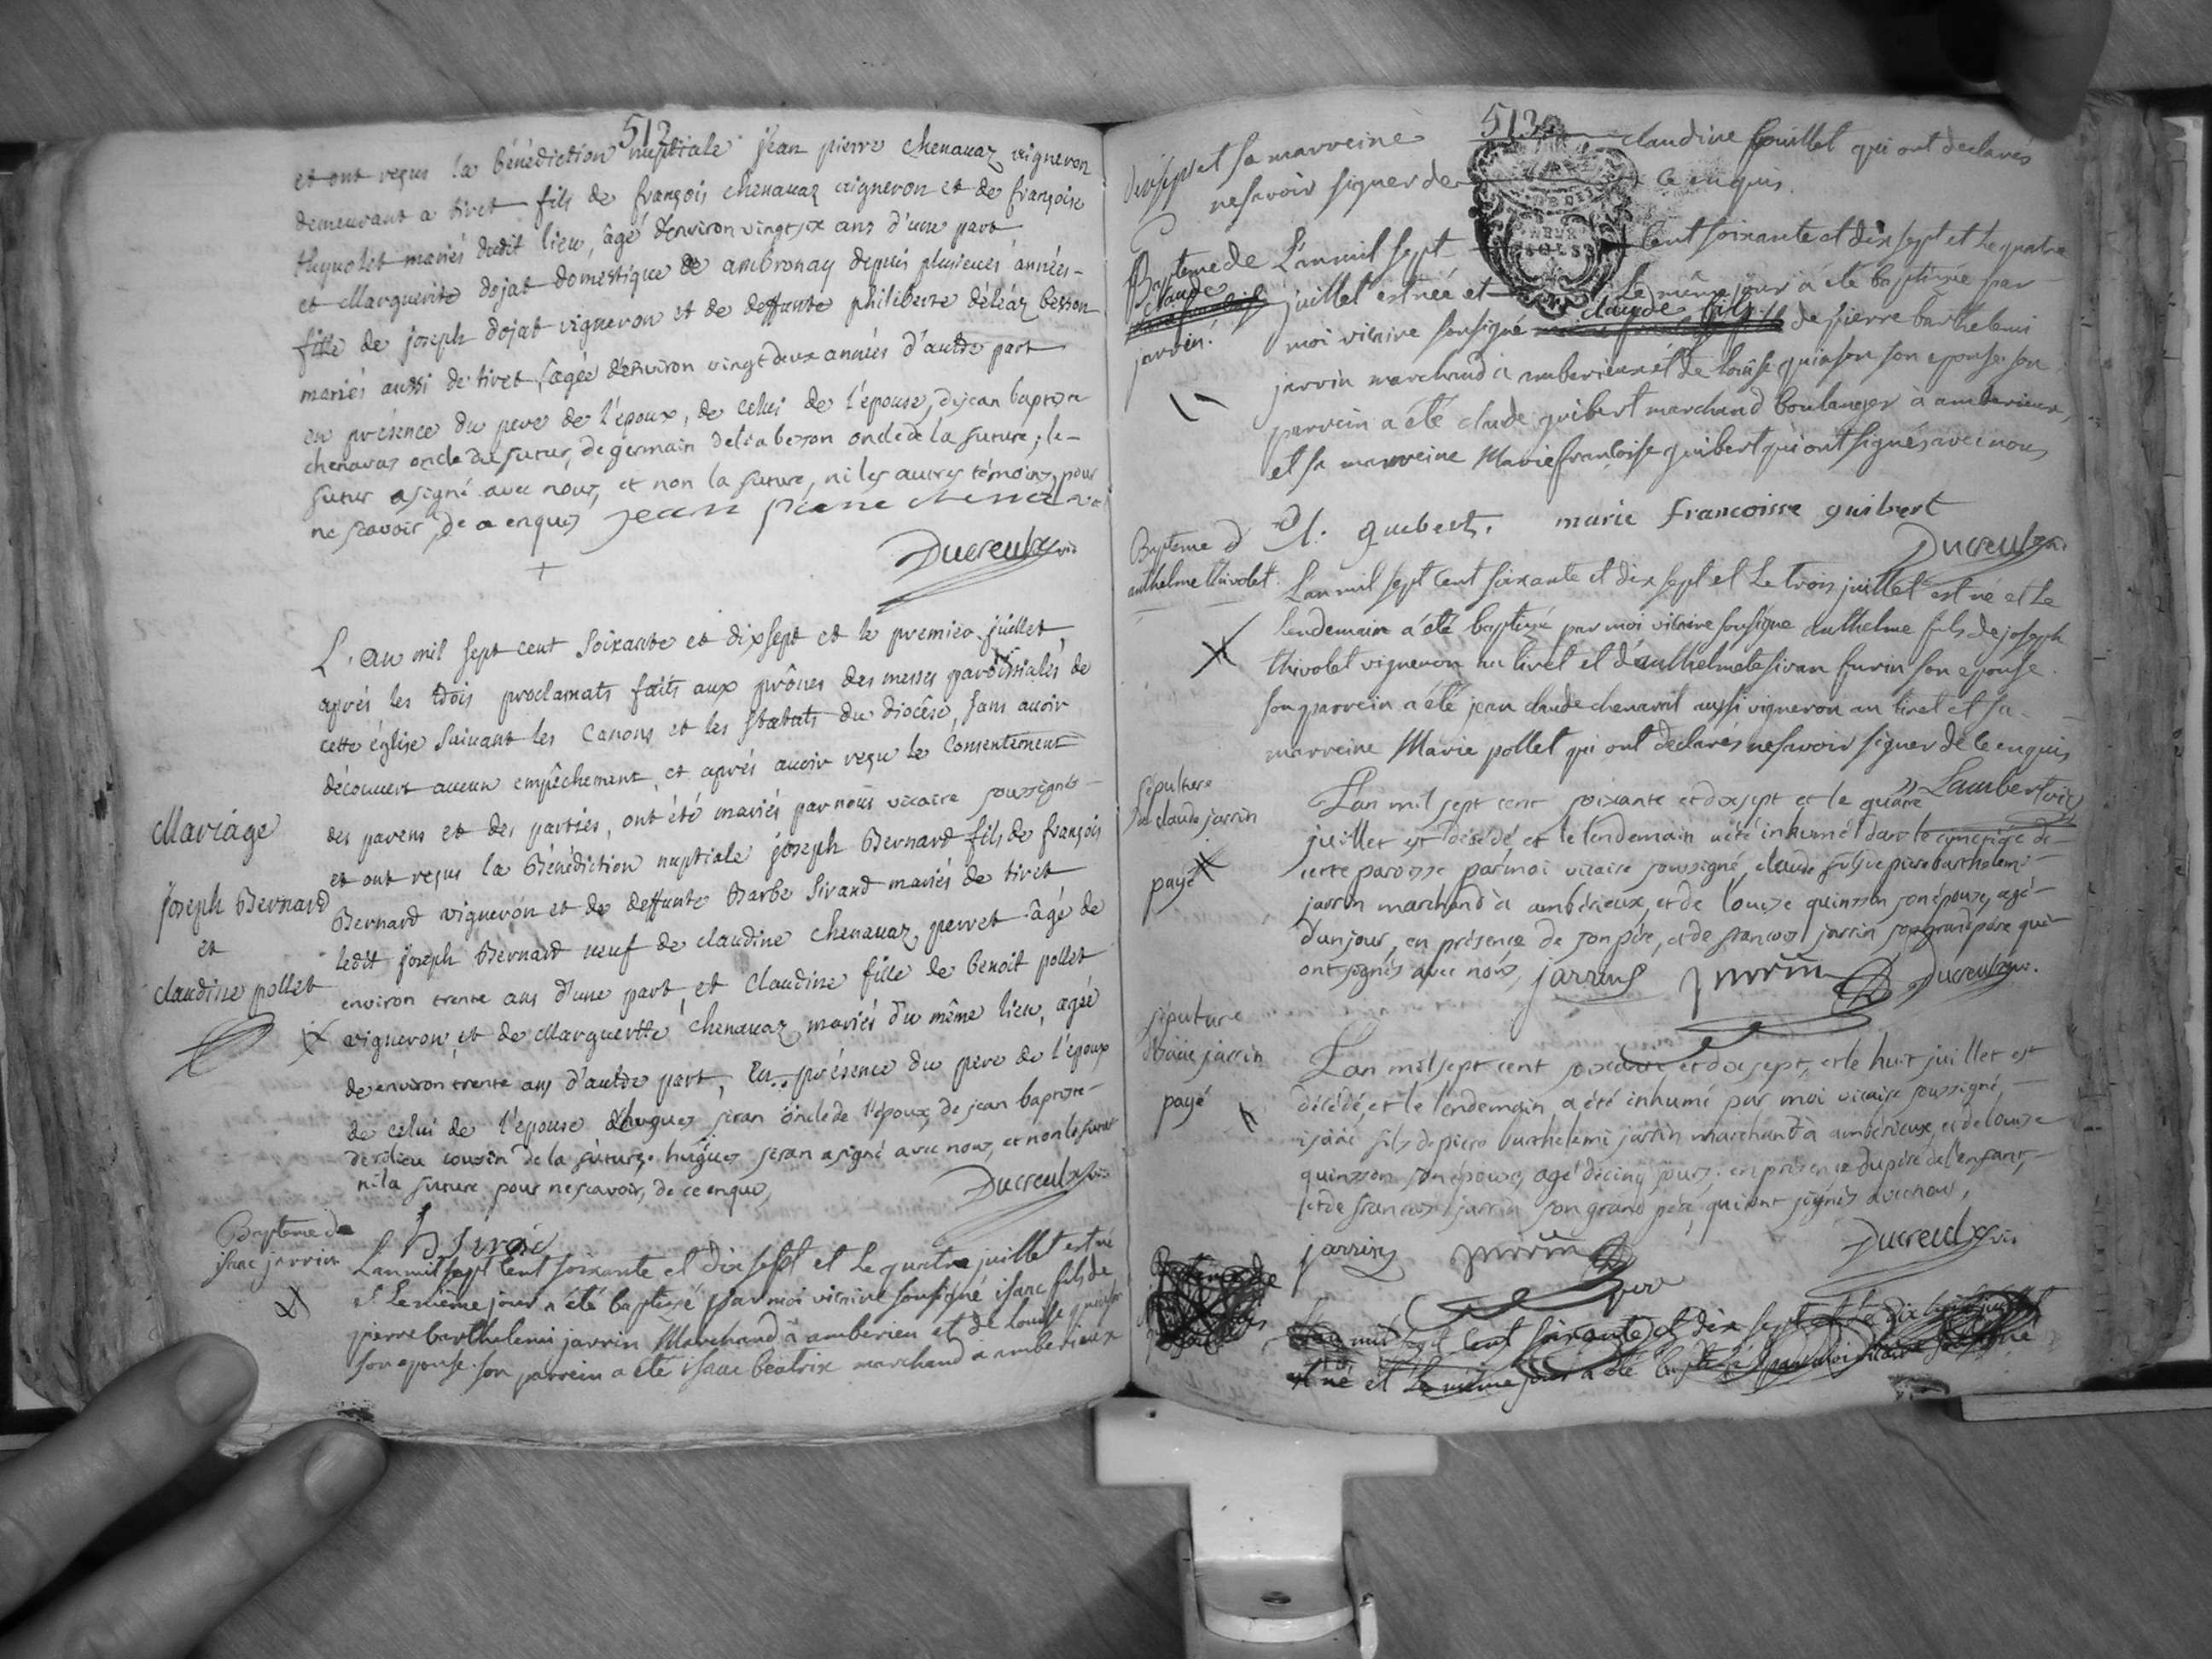 512
et ont reçus la bénédiction nuptiale jean pierre chenavaz vigneron
demeurant a tiret fils de françois chenavaz vigneron et de françoise
mariés dudit lieu, âgé d'environ vingt six ans d'une part
et Marguerite dojat domestique de ambronay depuis plusieurs années
fille de joseph dojat vigneron et de deffunte philiberte déléaz besson
mariés aussi de tiret, âgée d'environ vingt deux années d'autre part
en présence du pere de l'époux, de celui de l'épouse, de jean baptiste
chenavaz oncle du futur, de germain besson oncle de la future; le
futur a signé avec nous, et non la future, ni les autres témoins, pour
ne scavoir, de ce enquis jean piere chenava
Ducreulx vic.
L'an mil sept cent soixante et dix sept et le premier juillet,
aprés les trois proclamats faits aux prônes des messes paroissiales de
cette église suivant les canons et les statuts du diocèse, sans avoir
découvert aucun empêchement, et aprés avoir reçu le consentement
des parens et des parties, ont été mariés par nous vicaire soussigné
et ont reçus la Bénédiction nuptiale joseph Bernard fils de françois
Bernard vigneron et de deffunte Barbe Sirand mariés de tiret
ledit joseph Bernard veuf de claudine chenavaz perret âgé de
environ trente ans d'une part, et Claudine fille de benoit pollet
vigneron, et de Marguerite chenavaz mariés du même lieu, agée
de environ trente ans d'autre part, en présence du pere de l'époux
de celui de l'épouse d'hugues siran oncle de l'époux, de jean baptiste
cousin de la future. hugues siran a signé avec nous, et non le futur
ni la future pour ne scavoir, de ce enquis,
Ducreulx vic.
Mariage
joseph Bernard
et
claudine pollet
h sirand
Bapteme de
isaac jarrin
L'an mil sept cent soixante et dix sept et le quatre juillet est né
et le même jour a été baptisé par moi vicaire sousigné isaac fils de
pierre barthelemi jarrin Marchand à amberieu et de louise quinson
son epouse. son parrein a été isaac beatrix marchand a amberieux
513
sa marreine claudine bouillet qui ont declarés
ne savoir signer de ce enquis.
Bapteme de
claude
jarrin.
L'an mil sept cent soixante et dix sept et le quatre
juillet est née et le même jour a été baptisée par
moi vicaire sousigné claude fils de pierre barthelemi
jarrin marchand à amberieux et de louise quinson son epouse. son
parrein a été claude guibert marchand boulanger à amberieux,
et sa marreine Marie françoise guibert qui ont signés avec nous
Cl. guibert. marie francoisse guibert
Ducreulx vic.
Bapteme d'
anthelme thivolet.
L'an mil sept cent soixante et dix sept et le trois juillet est né et le
lendemain a été baptisé par moi vicaire sousigné anthelme fils de joseph
thivolet vigneron au tiret et d'anthelmete siran furin son epouse.
son parrein a été jean claude chenavat aussi vigneron au tiret et sa
marreine Marie pollet qui ont declarés ne savoir signer de ce enquis
Lambert vic.
sépulture
de claude jarrin
payé
L'an mil sept cent soixante et dix sept et le quatre
juillet est décédé, et le lendemain a été inhumé dans le cimetière de
cette paroisse par moi vicaire soussigné, claude fils de pierre barthelemi
jarrin marchand à ambérieux, et de louise quinsson son épouse, agé
d'un jour, en présence de son père, et de francois jarrin son grand père qui
ont signés avec nous, jarrin jarrin Ducreulx vic.
sépulture
d'isaac jarrin
payé
L'an mil sept cent soixante et dix sept, et le huit juillet est
décédé, et le lendemain a été inhumé par moi vicaire soussigné,
isaac fils de pierre barthelemi jarrin marchand à ambérieux, et de louise
quinsson son épouse, agé de cinq jours; en présence du père de l'enfant,
et de francois jarrin son grand père, qui ont signés avec nous,
jarrin jarrin
Ducreulx vic.
L'an mil sept cent soixante et dix sept et le dix huit juillet
est né et le même jour a été baptisé par moi vicaire sousigné